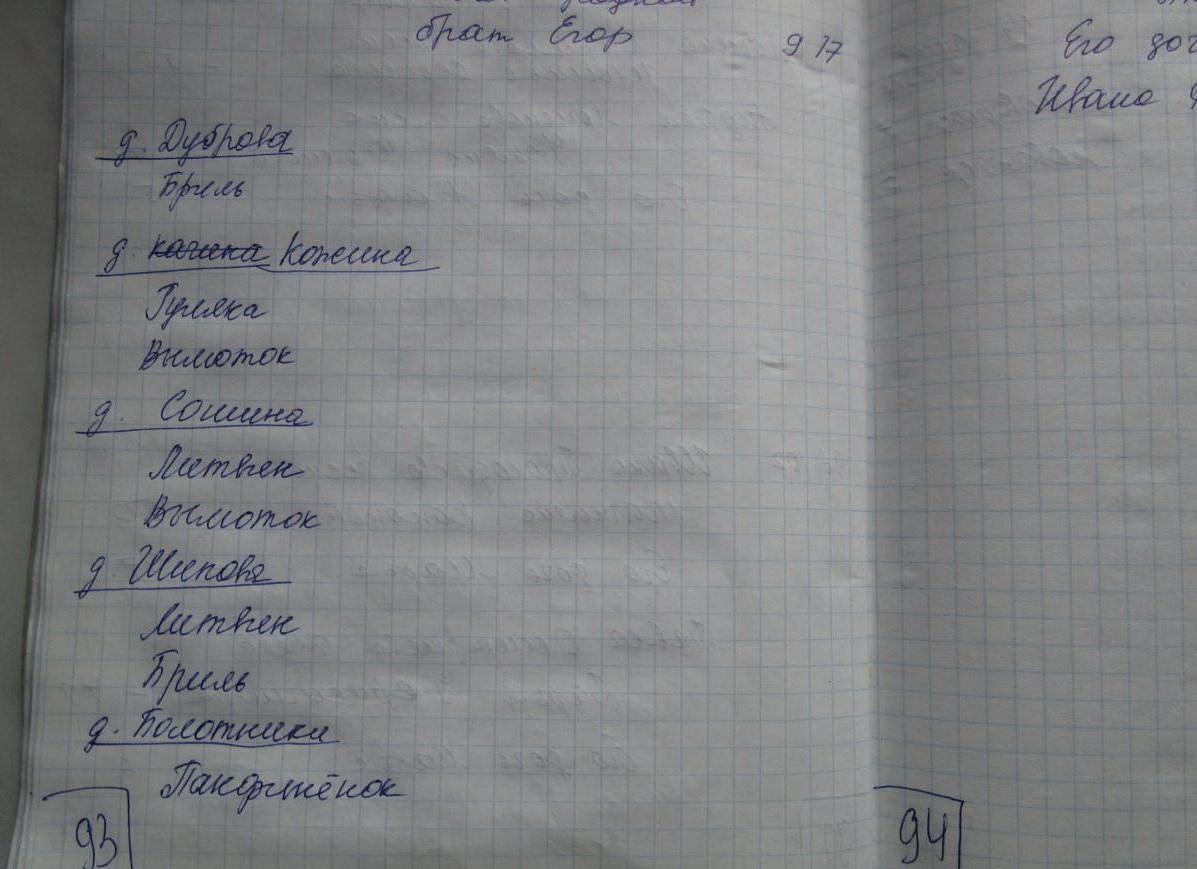 брат Егор 9 17
д. Дуброва
Бриль
д. качина Кожина
Гуляка
Вымоток
д. Сошина
Литвен
Вымоток
д. Шипова
Литвен
Бриль
д. Болотники
Панфилёнок
93
Его доч
Ивана
94